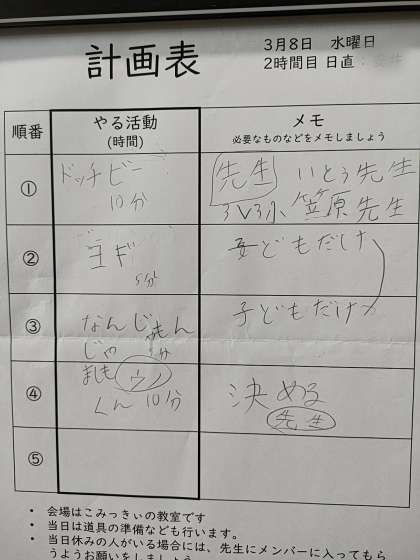 計画表
3月8日　水曜日
2時間目 日直：
順番
やる活動
(時間)
メモ
必要なものなどをメモしましょう
①
ドッチビー
10分
先生 いとう先生
3V3 笠原先生
②
ヨギ
5分
子どもだけ
③
なんじゃもん
じゃ
分
子どもだけ
④
ましも ウノ
くん 10分
決める
先生
⑤
・ 会場はこみっきぃの教室です
・ 当日は道具の準備なども行います。
・ 当日休みの人がいる場合には、先生にメンバーに入ってもら
うようお願いをしましょう